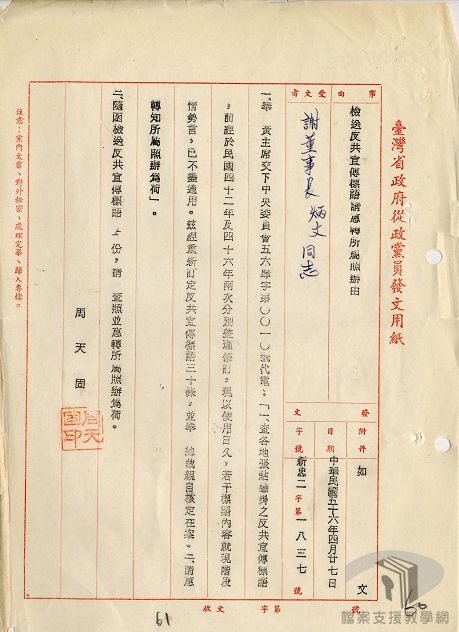 臺灣省政府從政黨員發文用紙
事由
受文者
檢送反共宣傳標語請惠轉所屬照辦由
謝董事長炳文同志
發文
附件 如文
日期 中華民國五十六年四月廿七日
字號 新忠二字第一八三七號
一、奉 黃主席交下中央委員會五六舉字第〇〇一〇號代電：「一、查各地張貼繪掛之反共宣傳標語
，前經於民國四十二年及四十六年兩次分別整理修訂，現以使用日久，若干標語內容就現階段
情勢言，已不盡適用。茲經重新訂定反共宣傳標語三十條，並奉 總裁親自核定在案。二、請惠
轉知所屬照辦為荷」。
二、隨函檢送反共宣傳標語 份，請 查照並惠轉所屬照辦為荷。
周天固
周天固印
注意：黨內文書、對外秘密、處理完畢、歸入專檔。
收文 字第 號
61
60
檔案支援教學網